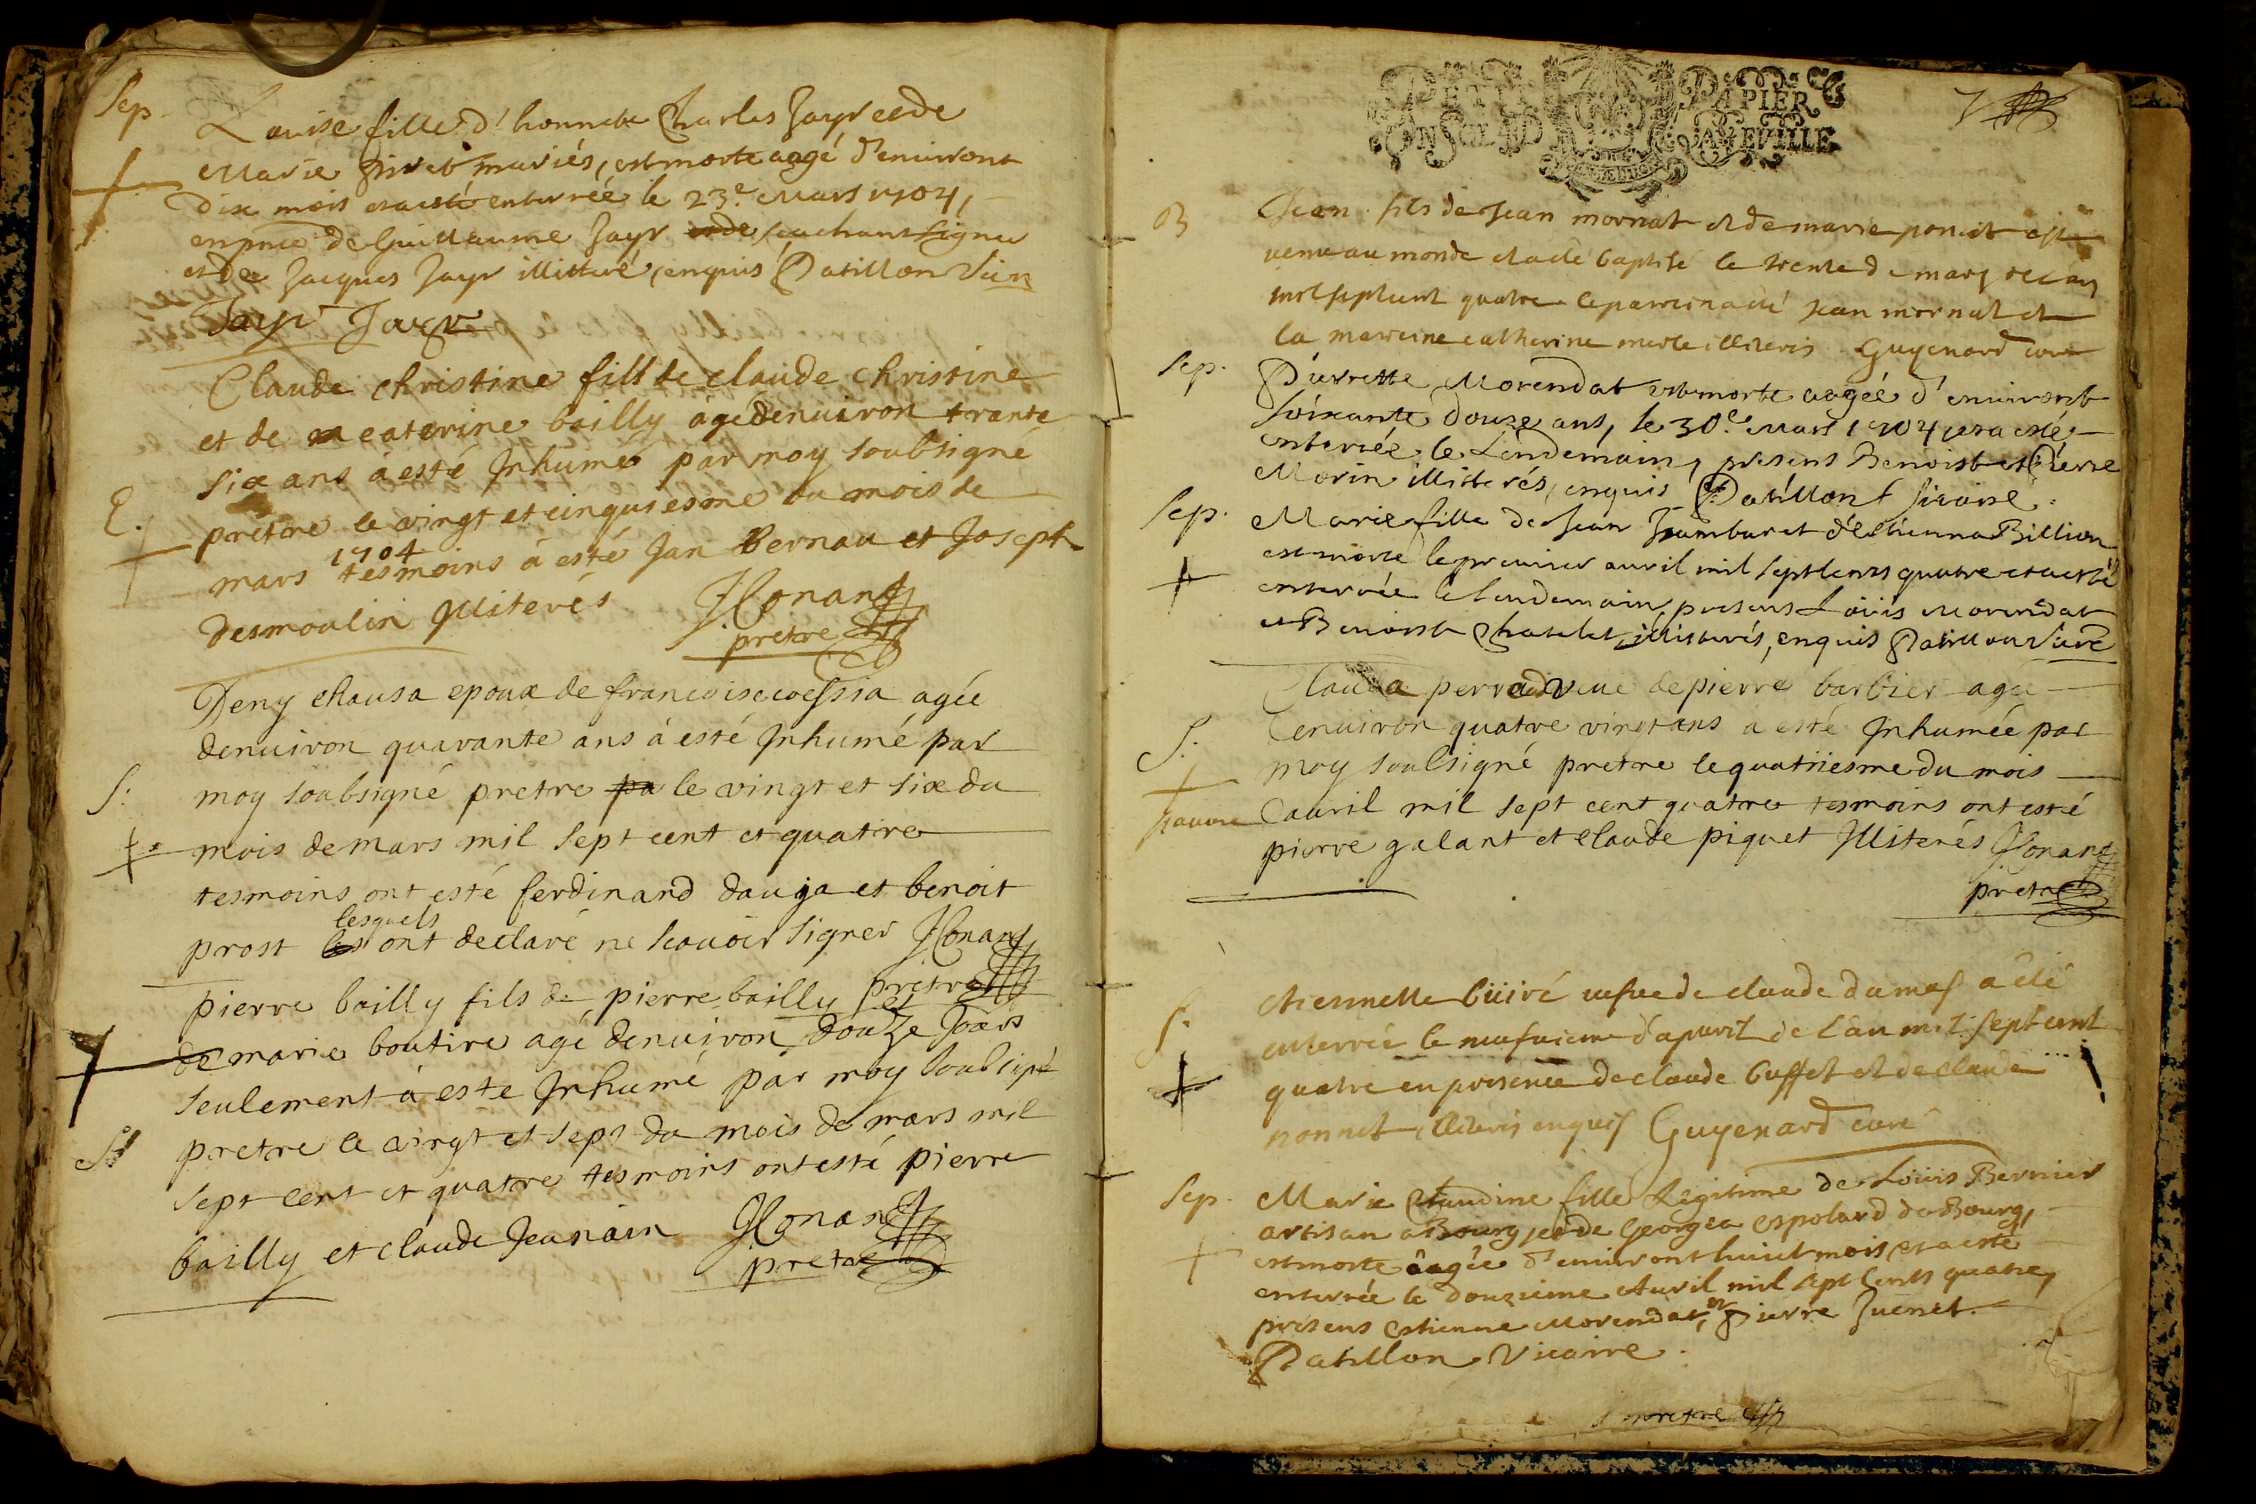 Sep.
Louise fille d'honneste Charles Jayr et de
Marie Piret mariés, est morte aagé d'environt
dix mois et a esté enterrée le 23e. Mars 1704,
en pnce de Guillaume Jayr et de scachant signer
et de Jacques Jayr illitteré, enquis Datillon Vic
Jayr Jayr
Claude christine fill de claude christine
et de m caterine bailly agé denuiron trante
six ans à esté Inhumé par moy soubsigné
E.
pretre le vingt et cinquiesme du mois de
1704
mars tesmoins à esté Jan Bernau et Joseph
desmoulin Illiterés JConand
pretre
Deny chausa epoux de francoise coessia agée
denuiron quarante ans à esté Inhumé par
S.
moy soubsigné pretre pa le vingt et six du
mois de mars mil sept cent et quatre
tesmoins ont esté ferdinand dauga et benoit
lesquels
prost les ont declaré ne scauoir signer JConand
pretre
pierre bailly fils de pierre bailly et
de marie boutire agé denuiron douze Jours
seulement à este Inhumé par moy soubsigné
S
pretre le vingt et sept du mois de mars mil
sept cent et quatre tesmoins ont esté pierre
bailly et claude Jeanain JConand
pretre
PETIT PAPIER
7
B
Jean fils de Jean mornat et de marie poncet est
venu au monde et a été baptisé le trente de mars de l'an
mil sept cent quatre le parrein a été jean mornat et
la marreine catherine merle illiteris Guyenard curé
Sep.
Pierrette Morendat est morte aagée d'environt
soixante douze ans, le 30e. Mars 1704 et a esté
enterrée le Lendemain, presens Benoist et Pierre
Morin illitterés, enquis Datillon Vicaire.
Sep.
Marie fille de Jean Jambur et d'Estienna Billion
est morte le premier auril mil sept cents quatre et a esté
enterrée le lendemain, presens Loüis Morendat
et Benoist Chatelet, illitterés, enquis Datillon Vicre
Clauda perrad veue de pierre barbier agée
S.
denuiron quatre vingt ans a esté Inhumée par
moy soubsigné pretre le quatriesme du mois
pauvre
dauril mil sept cent quatre tesmoins ont esté
pierre galant et claude piquet Illiterés JConand
pretre
S.
etiennette buiré vefve de claude dumas a été
enterrée le neufvieme d'apvril de l'an mil sept cent
quatre en presence de claude buffet et de claude
nonnet illiteris enquis Guyenard curé
Sep.
Marie Claudine fille Legitime de Loüis Bernier
artisan a Bourg, et de Georgea Espolard de Bourg,
est morte âagée d'environt huict mois, et a esté
enterrée le douzieme Auril mil sept cents quatre,
presens Estienne Morendat, et Pierre Juenet
Datillon Vicaire.
pretre